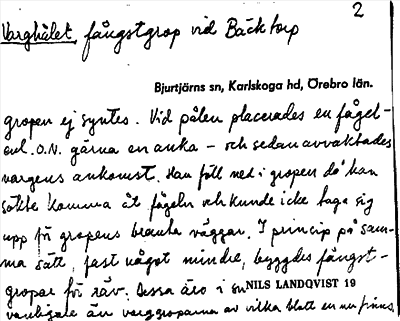 2
Varghålet, fångstgrop vid Bäcktorp
Bjurtjärns sn, Karlskoga hd, Örebro län.
gropen ej syntes. Vid pålen placerades en fågel-
enl. O.N. gärna en anka – och sedan avvaktades
vargens ankomst. Han föll ned i gropen då han
sökte komma åt fågeln och kunde icke taga sig
upp för gropens branta väggar. I princip på sam-
ma sätt, fast något mindre, byggdes fångst-
gropar för räv. Dessa äro i sn
NILS LANDQVIST 19
vanligare än varggroparna av vilka blott en nu finns